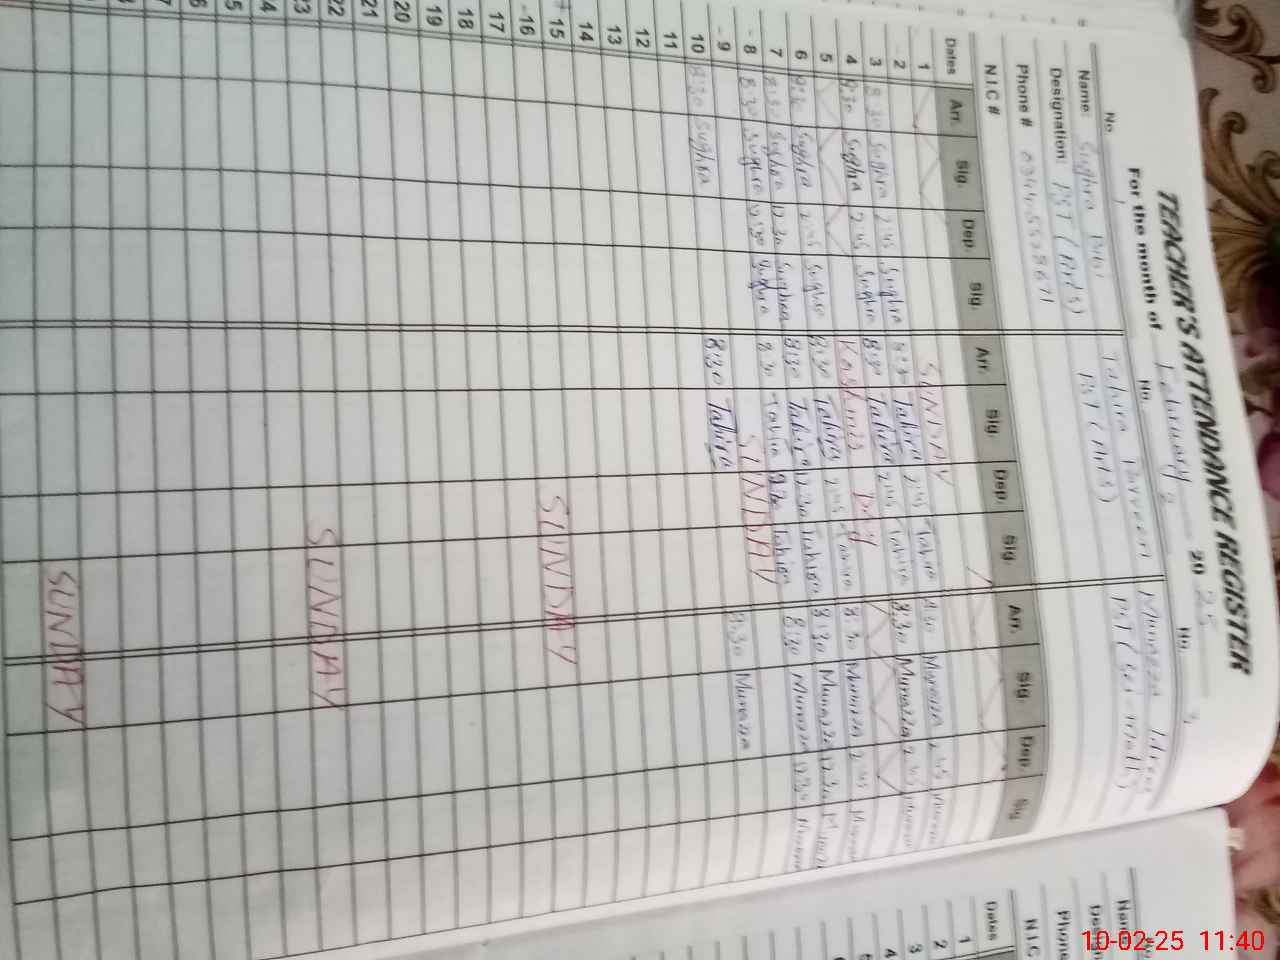 TEACHER'S ATTENDANCE REGISTER
For the month of February 2025
No. No. 2 No. 3
Name: Sughra Bibi Tahira Parveen Munazza
Designation: PST (Arts) PST (Arts) PST (Sci-math)
Phone # 0344-5528671
NIC #
Dates Arr. Sig. Dep. Sig. Arr. Sig. Dep. Sig. Arr. Sig. Dep. Sig.
1
2 SUNDAY
3 8:30 Sughra 2:45 Sughra 8:30 Tahira 2:45 Tahira 8:30 Munazza 2:45
4 8:30 Sughra 2:45 Sughra 8:30 Tahira 2:45 Tahira 8:30 Munazza 2:45
5 Kashmir Day
6 8:30 Sughra 2:45 Sughra 8:30 Tahira 2:45 Tahira 8:30 Munazza 2:45
7 8:30 Sughra 12:30 Sughra 8:30 Tahira 12:30 Tahira 8:30 Munazza 12:30
8 8:30 Sughra Sughra 8:30 Tahira Tahira 8:30 Munazza 12:30
9 SUNDAY
10 8:30 Sughra 8:30 Tahira 8:30 Munazza
11
12
13
14
15
16 SUNDAY
17
18
19
20
21
22
23 SUNDAY
SUNDAY
Dates
1
2
3
4
Name
Phone
NIC
10-02-25 11:40